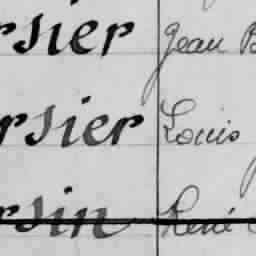 rsier Jean B
rsier Louis
rsin René